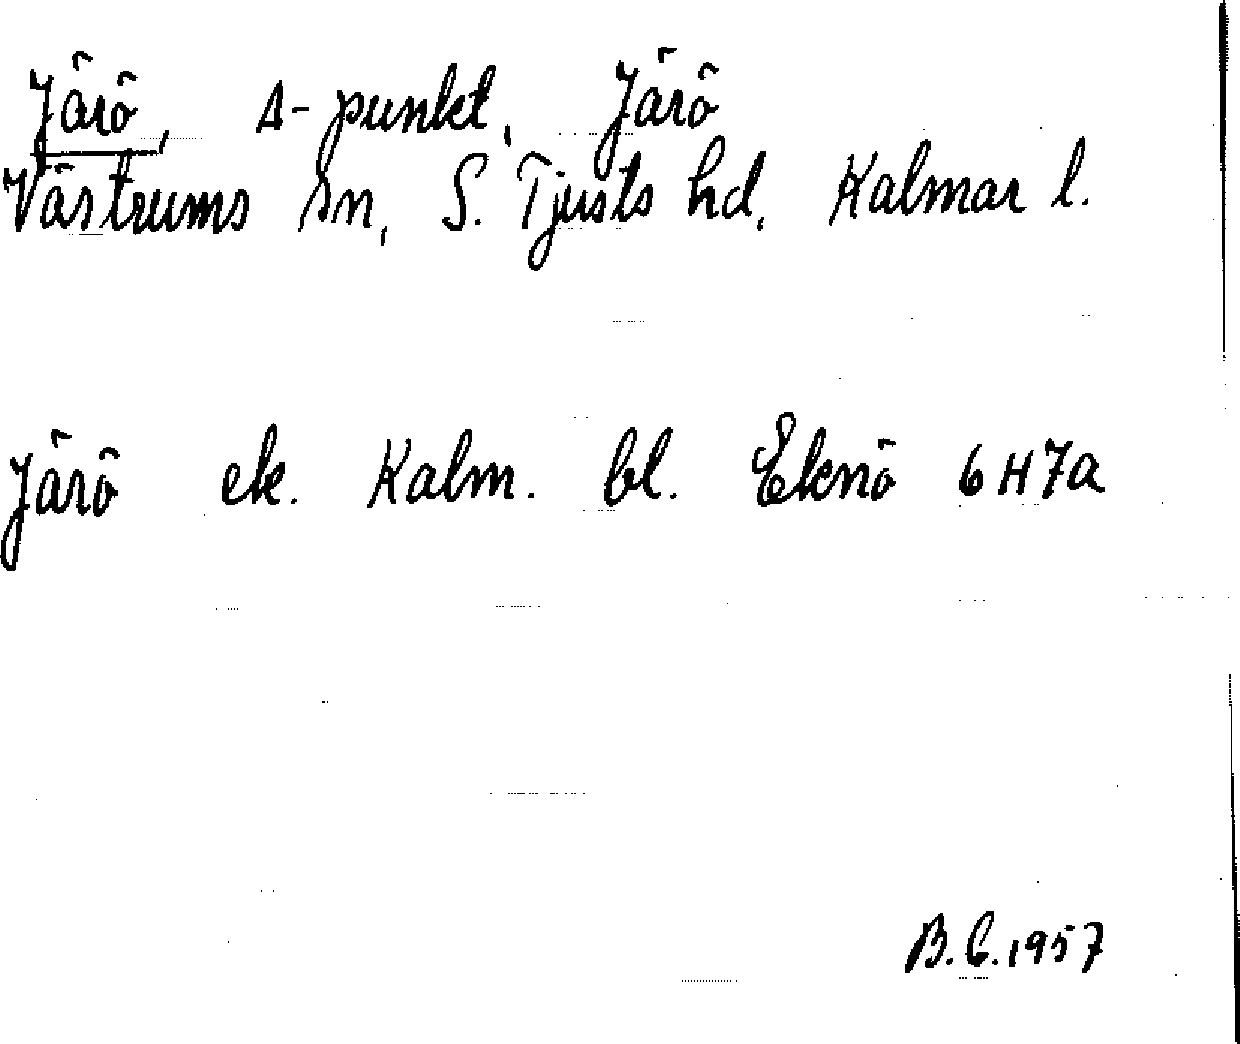 Järö, Δ-punkt, Järö
Västrums sn, S. Tjusts hd, Kalmar l.
Järö ek. Kalm. bl. Eknö 6H7a
B.C.1957